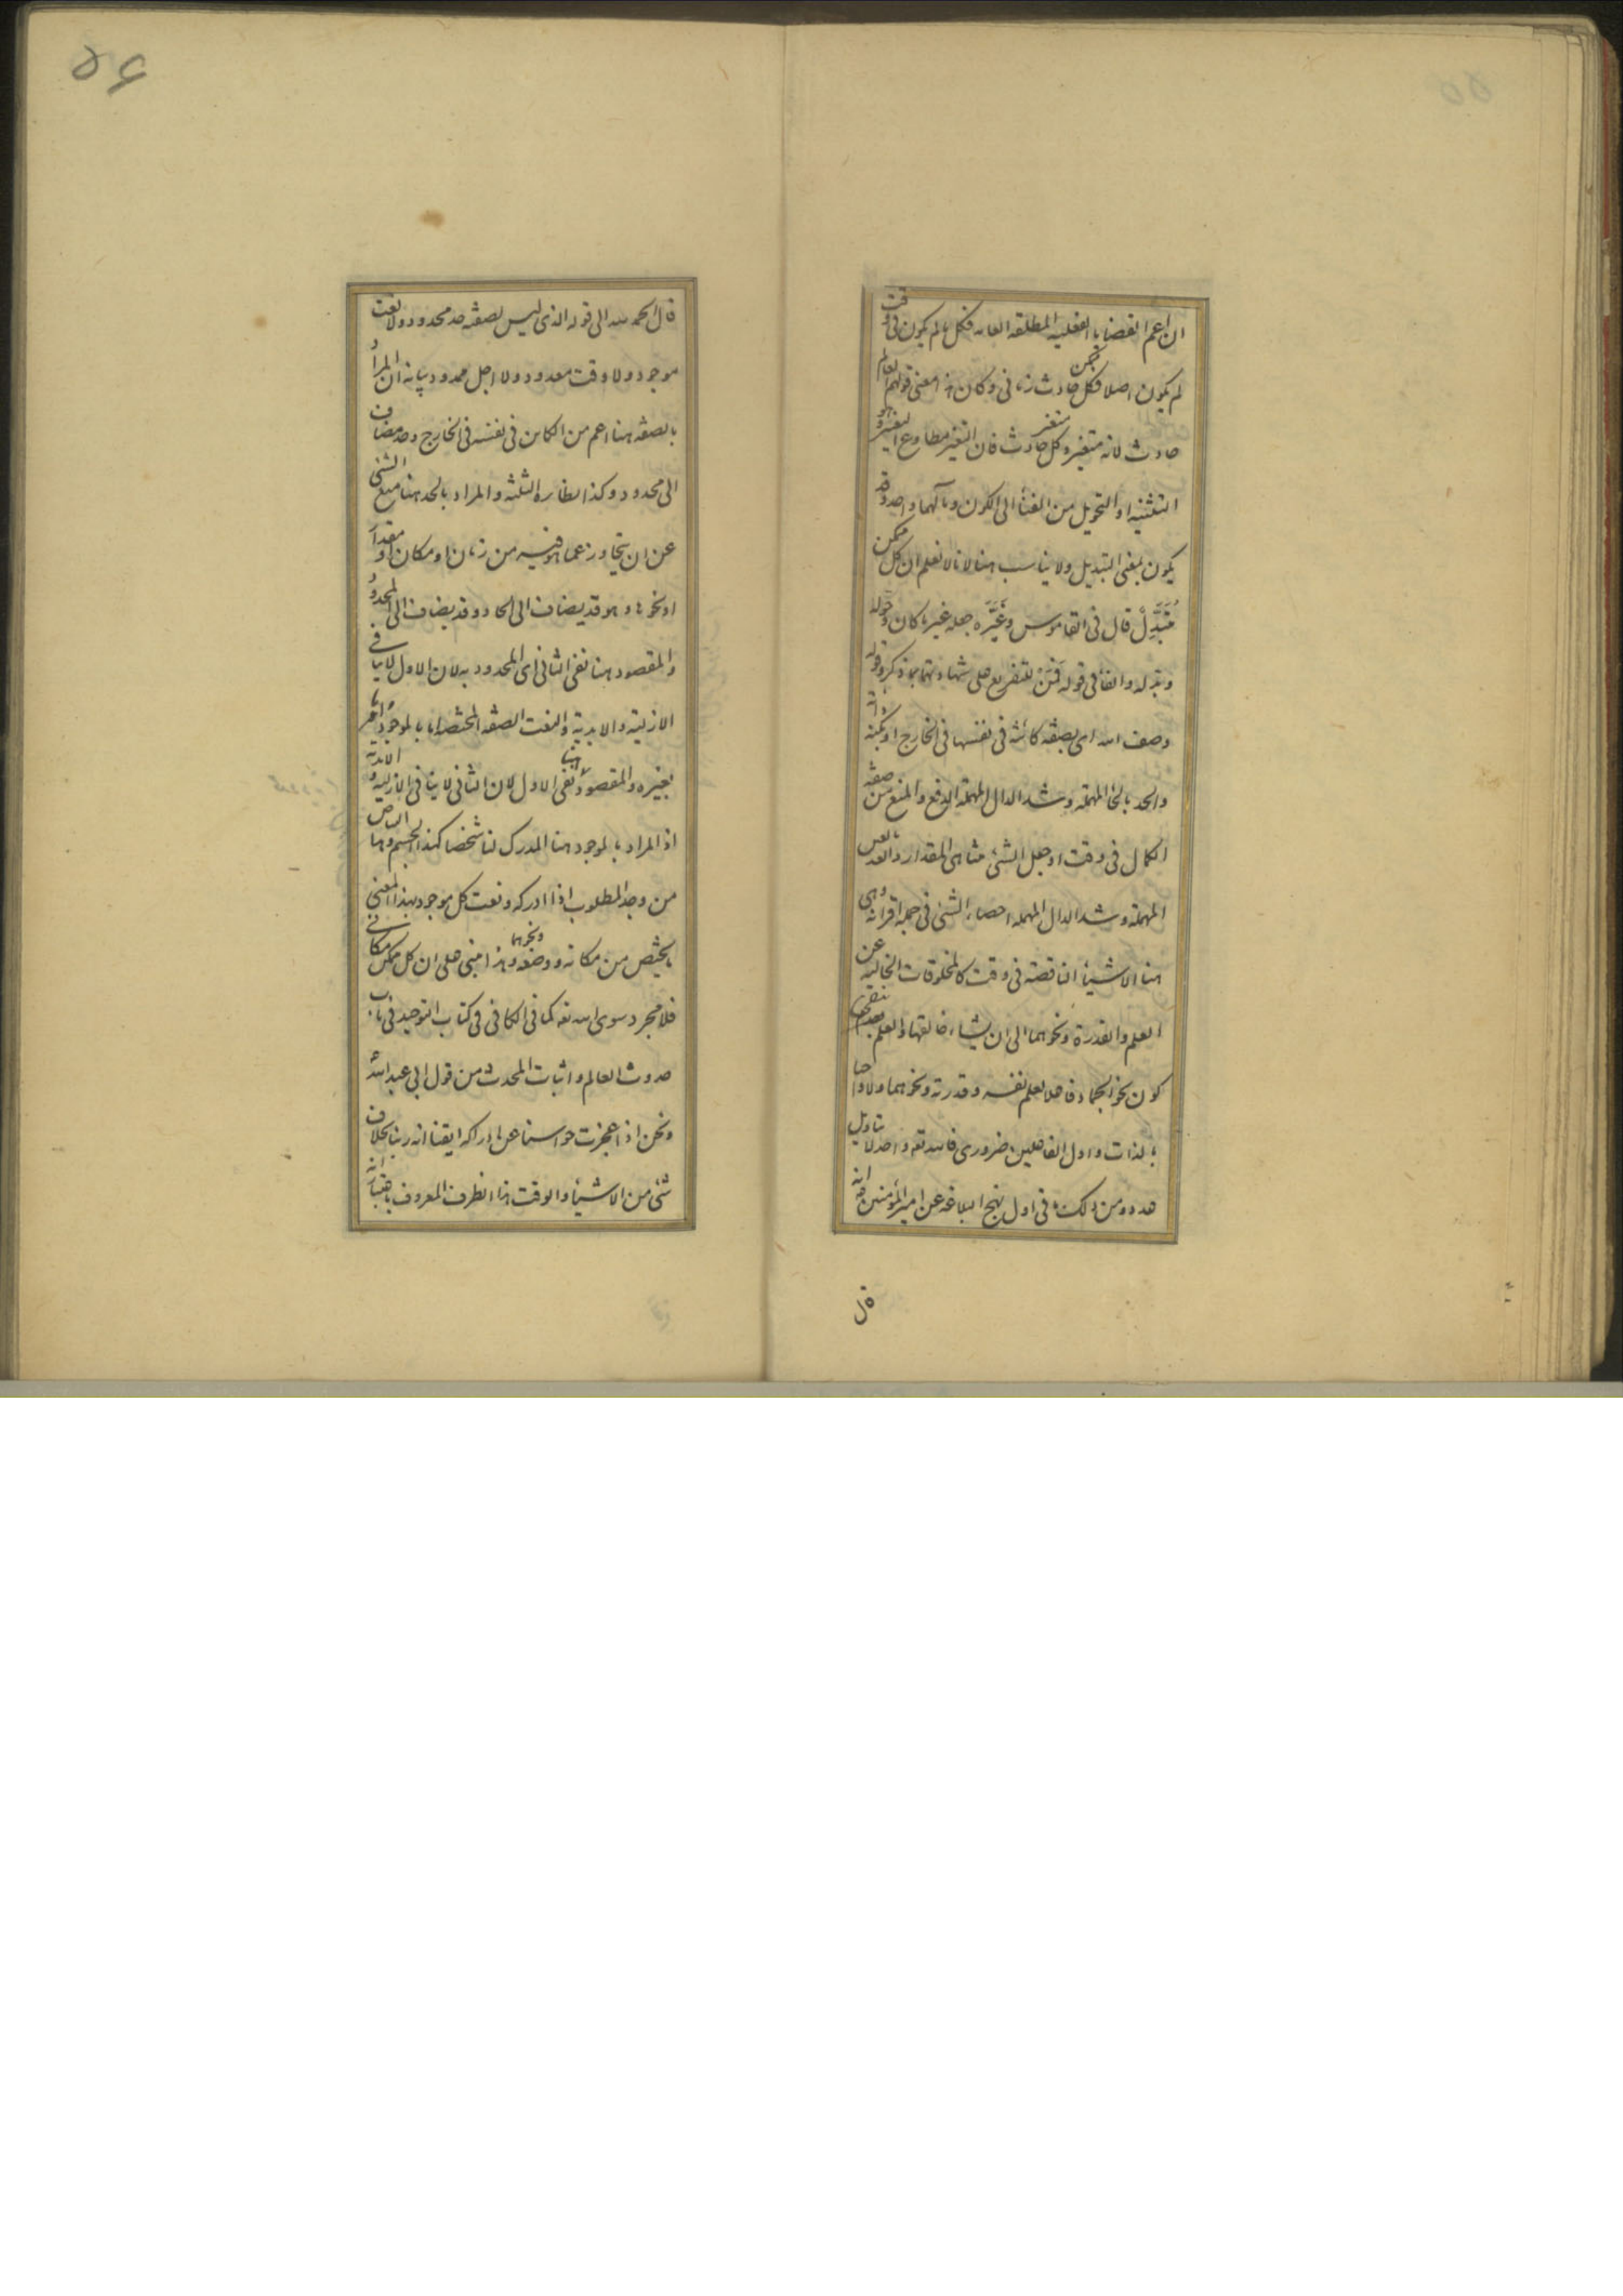 ان اعم القضايا الفعليه المطلقه العامه فكل ما لم يكون فى وقت
لم يكون اصلا فكل ممكن حادث زمانى وكان هذا معنى قولهم العالم
حادث لانه متغير وكل متغير حادث فان التغير مطاوع التغيير وهو
او التحويل من الى الكون ومآلهما واحد وقد
يكون بمعنى التبديل ولا يناسب هنا لانا لا نعلم ان كل ممكن
مُتَبَدِّلٌ قال فى القاموس وغَيَّرَه جعله غير ما كان وحوله
وبدله والفا فى قوله فَمَنْ للتفريع على شهادتهما بما ذكر وقوله
وصف الله اى بصفة كائنة فى نفسها فى الخارج او بكنه ذاته
والحد بالحا المهملة وشد الدال المهملة الدفع والمنع من صفة
الكمال فى وقت او جعل الشئ متناهى المقدار والعد بالعين
المهملة وشد الدال المهمله احصاء الشئ فى جملة اقرانه وهى
هنا الاشيأ الناقصة فى وقت كالمخلوقات الخالية عن
العلم والقدرة ونحوهما الى ان يشاء خالقها والعلم بعدم
كون نحو الجماد فاعلا بعلم نفسه وقدرته ونحوهما ولا واجبا
بالذات واول الفاعلين ضرورى فالله تعه واحد لا بتاويل
عدد ومن ذلك ما فى اول نهج البلاغه عن امير المؤمنين انه
قال
۵۶
قال الحمد لله الى قوله الذى ليس لصفته حد محدود ولا نعت
موجود ولا وقت معدود ولا اجل ممدود بيانه ان المراد
بالصفة هنا اعم من الكائن فى نفسه فى الخارج وحد مضاف
الى محدود وكذا نظايره الثلثه والمراد بالحد هنا منع الشئ
عن ان يتجاوز عما هو فيه من زمان او مكان او مقدار
او نحوها وهو قد يضاف الى الحاد وقد يضاف الى المحدود
والمقصود هنا نفى الثانى اى المحدوديه لان الاول لا ينافى
الازلية والابدية والنعت الصفة المختصة اما بالموجود واما
بغيره والمقصود هنا نفى الاول لان الثانى لا ينافى الازلية والابدية
اذ المراد بالموجود هنا المدرك لنا شخصا كهذا الجسم وهذا البياض
من وجد المطلوب اذا ادركه ونعت كل موجود بهذا المعنى
ما يختص من مكانه ووضعه ونحوهما وهذا مبنى على ان كل ممكن مكانى
فلا مجرد سوى الله تعه كما فى الكافى فى كتاب التوحيد فى باب
حدوث العالم واثبات المحدث من قول ابى عبد الله
ونحن اذا عجزت حواسنا عن ادراكه ايقنا انه ربنا بخلاف
شئ من الاشيأ والوقت هنا الظرف المعروف باعتبار انه